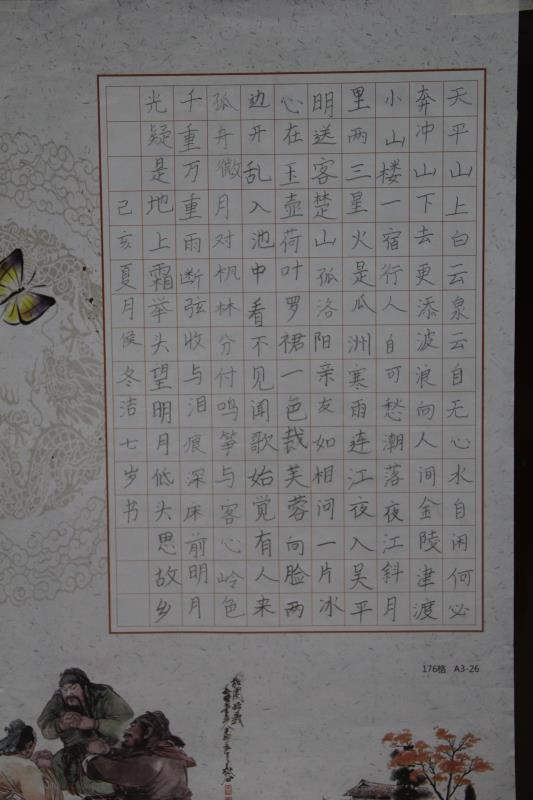 天平山上白云泉云自无心水自闲何必
奔冲山下去更添波浪向人间金陵津渡
小山楼一宿行人自可愁潮落夜江斜月
里两三星火是瓜洲寒雨连江夜入吴平
明送客楚山孤洛阳亲友如相问一片冰
心在玉壶荷叶罗裙一色裁芙蓉向脸两
边开乱入池中看不见闻歌始觉有人来
孤舟微月对枫林分付鸣筝与客心岭色
千重万重雨断弦收与泪痕深床前明月
光疑是地上霜举头望明月低头思故乡
己亥夏月侯冬洁七岁书
176格 A3-26